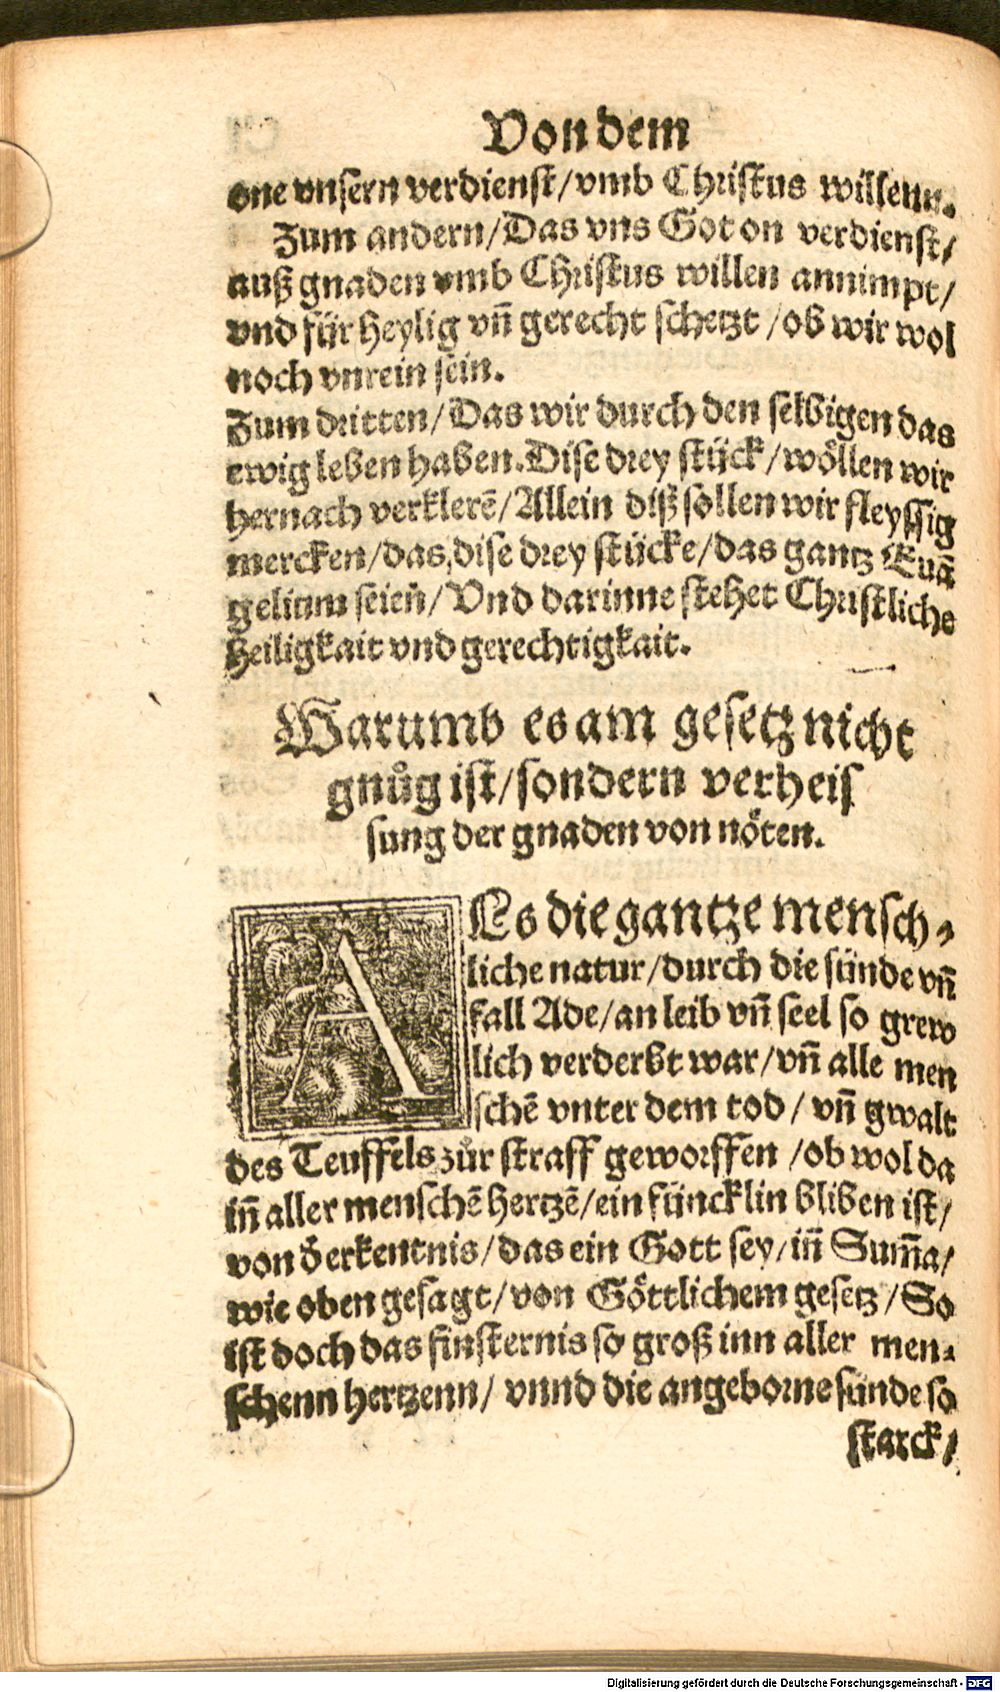 Von dem
one vnsern verdienst/vmb Christus willenn.
Zum andern/Das vns Got on verdienst/
auß gnaden vmb Christus willen annimpt/
vnd für heylig vñ gerecht schetzt/ob wir wol
noch vnrein sein.
Zum dritten/Das wir durch den selbigen das
ewig leben haben. Dise drey stück/wöllen wir
hernach verklerē/Allein diß sollen wir fleyssig
mercken/das dise drey stücke/das gantz Euā
gelium seien/Vnd darinne stehet Christliche
heiligkait vnd gerechtigkait.
Warumb es am gesetz nicht
gnůg ist/sondern verheis
sung der gnaden von nöten.
ALs die gantze mensch-
liche natur/durch die sünde vñ
fall Ade/an leib vñ seel so grew
lich verderbt war/vñ alle men
schē vnter dem tod/vñ gwalt
des Teuffels zůr straff geworffen/ob wol da
iñ aller menschē hertzē/ein füncklin bliben ist/
von d̄ erkentnis/das ein Gott sey/iñ Sum̄a/
wie oben gesagt/von Göttlichem gesetz/So
ist doch das finsternis so groß inn aller men-
schenn hertzenn/vnnd die angeborne sünde so
starck/
Digitalisierung gefördert durch die Deutsche Forschungsgemeinschaft - DFG